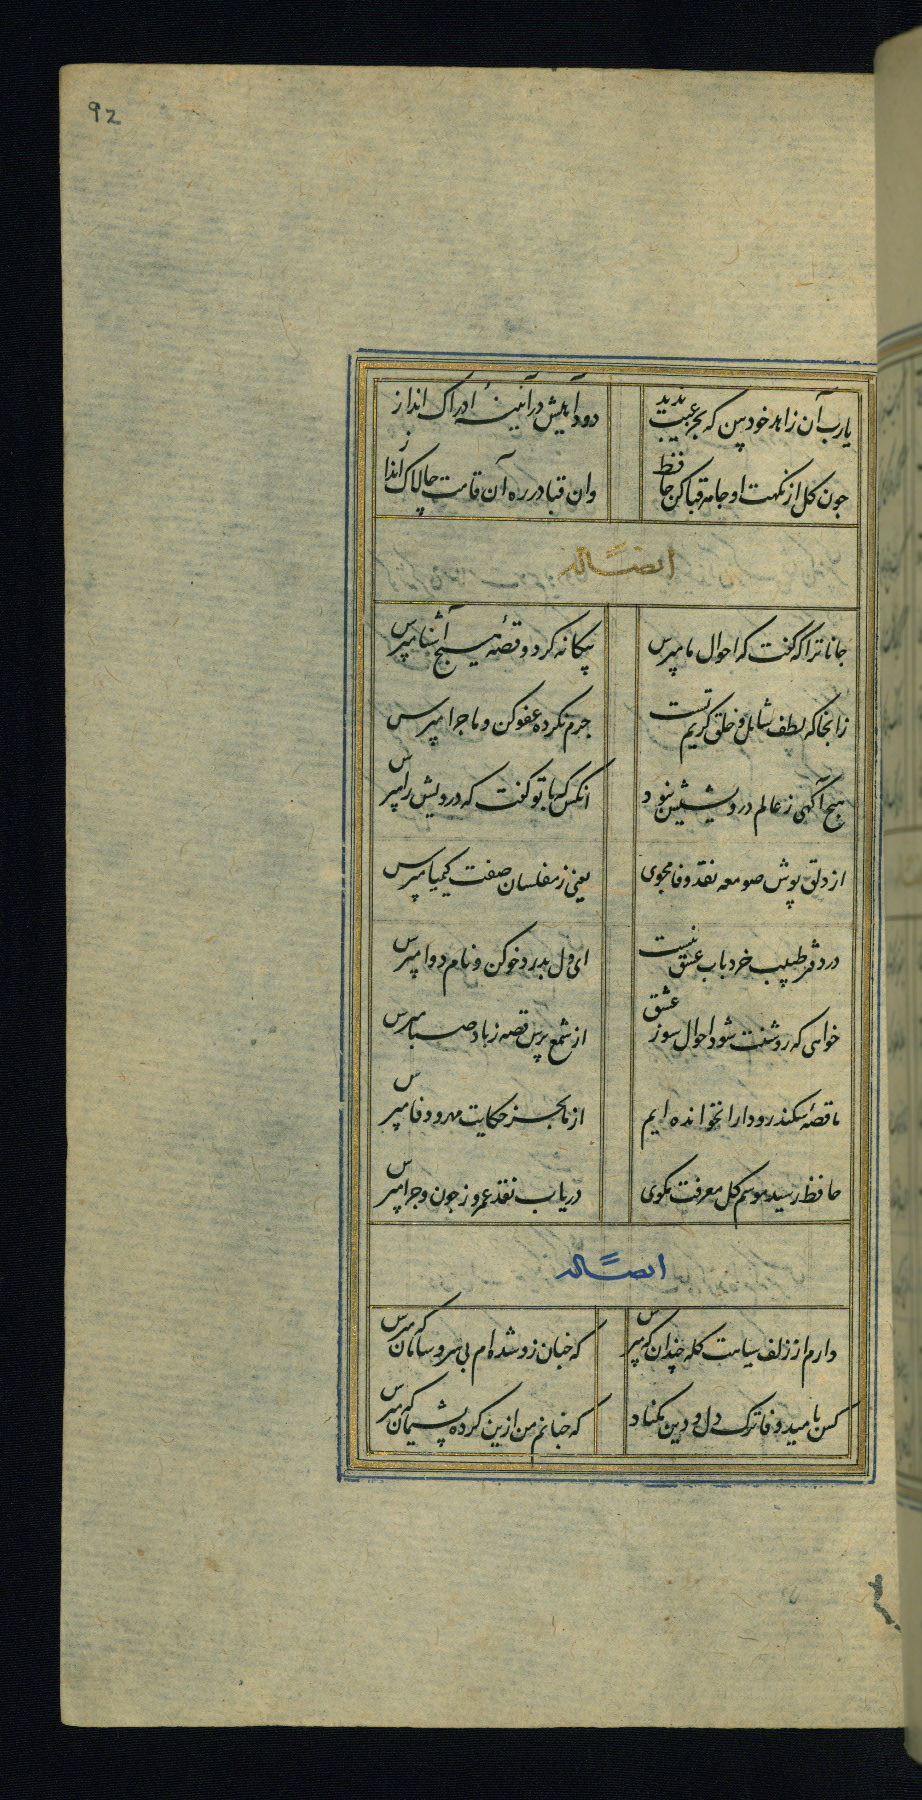 92
یارب آن زاهد خودبین که بجز عیب ندید دود آهیش در آئینهٔ ادراک انداز
چون کل از نکهت او جامه قبا کن حافظ وان قبا در ره آن قامت چالاک انداز
ایضاً له
جانا ترا که کفت که احوال ما مپرس بیکانه کرد و قصهٔ هیچ آشنا مپرس
زانجا که لطف شامل و خلق کریم تست جرم نکرده عفو کن و ماجرا مپرس
هیچ آکهی ز عالم درویشیش نبود انکس که با تو کفت که درویش را مپرس
از دلق پوش صومعه نقد وفا مجوی یعنی ز مفلسان صفت کیمیا مپرس
در دفتر طبیب خرد باب عشق نیست ای دل بدرد خو کن و نام دوا مپرس
خواهی که روشنت شود احوال سوز عشق از شمع پرس قصه ز باد صبا مپرس
ما قصهٔ سکندر و دارا نخوانده ایم از ما بجز حکایت مهر و وفا مپرس
حافظ رسید موسم کل معرفت مکوی دریاب نقد عمر و ز چون و چرا مپرس
ایضاً له
دارم از زلف سیاهت کله چندان که مپرس که چنان زو شده ام بی سر و سامان که مپرس
کس بامید وفا ترک دل و دین مکناد که چنانم من ازین کرده پشیمان که مپرس